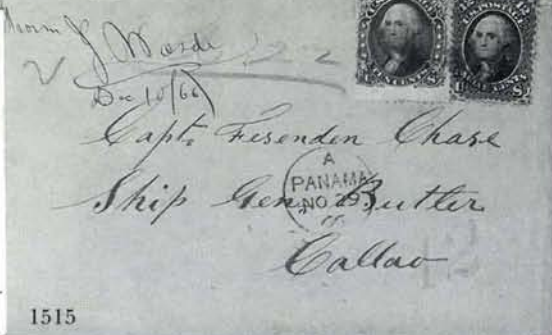 From J Warde
Dec 10/66
Capt. Fesenden Chase
Ship Gen. Butler
Callao
A
PANAMA
NO 29
66
12
U.S. POSTAGE
1515